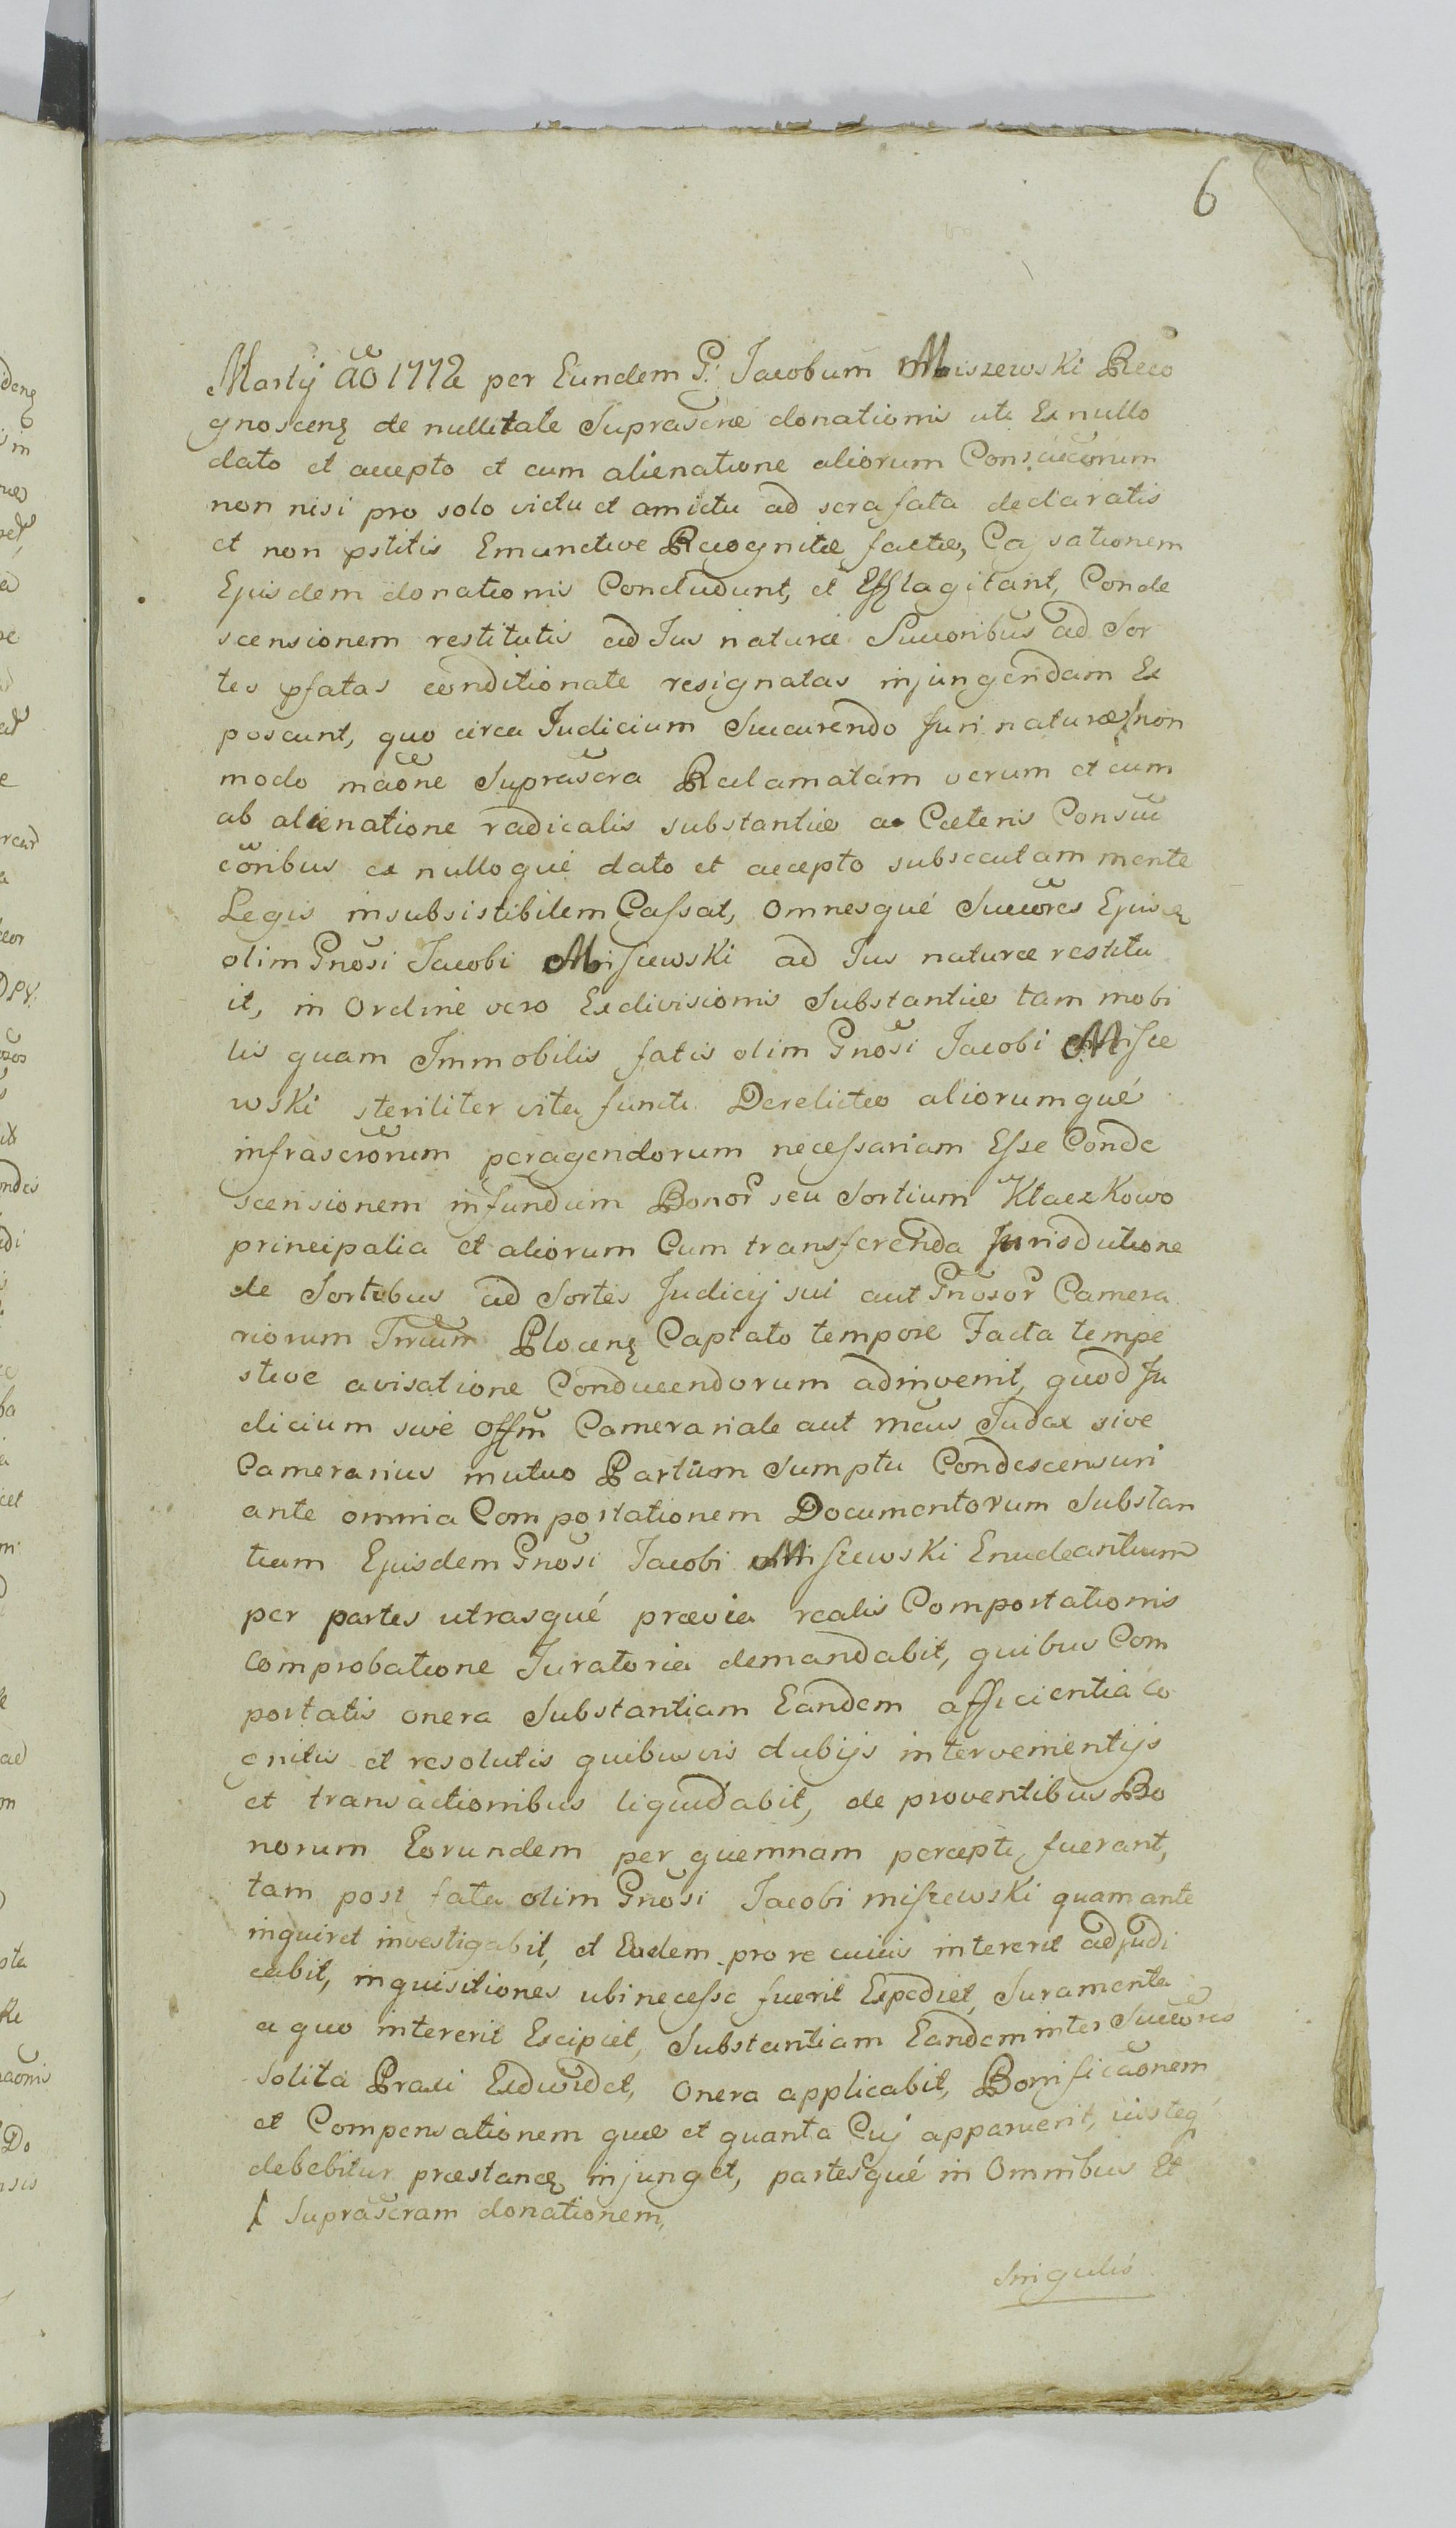 6
Martij aõ 1772 per Eundem G. Jacobum Miszewski Reco
gnoscens de nullitate Suprascrae donationis uti Ex nullo
dato et accepto et cum alienatione aliorum Consuccorum
non nisi pro solo victu et amictu ad sera fata declaratis
et non pstitis Emunctive Recognitae factae, Cassationem
Ejusdem donationis Concludunt, et Efflagitant, Conde
scensionem restitutis ad Jus naturae Succoribus ad Sor
tes pfatas conditionate resignatas injungendam Ex
poscunt, quo circa Judicium Succurendo Juri naturae non
modo maõne Suprascra Reclamatam verum et cum
ab alienatione radicalis substantiae a Caeteris Consuc
coribus ex nulloque dato et accepto subsecutam mente
Legis insubsistibilem Cassat, Omnesqué Succores Ejusd
olim Gnosi Jacobi Miszewski ad Jus naturae restitu
it, in Ordine vero Exdivisionis Substantiae tam mobi
lis quam Immobilis fatis olim Gnosi Jacobi Misze
wski steriliter vita functi Derelictae aliorumqué
infrascrorum peragendorum necessariam Esse Conde
scensionem in fundum Bonor seu Sortium Kłaczkowo
principalia et aliorum Cum transferenda Jurisdictione
de Sortibus ad Sortes Judicij sui aut Gnosor Camera
riorum Trrum Plocens Captato tempore Facta tempe
stive avisatione Conducendorum adinvenit, quod Ju
dicium sive Offm Camerariale aut meus Judex sive
Camerarius mutuo Partium Sumptu Condescensuri
ante omnia Comportationem Documentorum Substan
tiam Ejusdem Gnosi Jacobi Miszewski Enucleantium
per partes utrasqué praevia realis Comportationis
Comprobatione Juratoria demandabit, quibus Com
portatis onera Substantiam Eandem afficientia co
gnitis et resolutis quibusvis dubijs intervenientijs
et transactionibus liquidabit, de proventibus Bo
norum Eorundem per quemnam percepti fuerant,
tam post fata olim Gnosi Jacobi miszewski quam ante
inquiret investigabit, et Eadem pro re cuius intererit adjudi
cabit, inquisitiones ubi necesse fuerit Expediet, Juramenta
a quo intererit Excipiet, Substantiam Eandem inter Succores
Solita Praxi Exdividet, Onera applicabit, Bonificaonem
et Compensationem quae et quanta Cuj apparuerit,
debebitur praestanda injunget, partesqué in Omnibus Et
Suprascram donationem,
Singulis